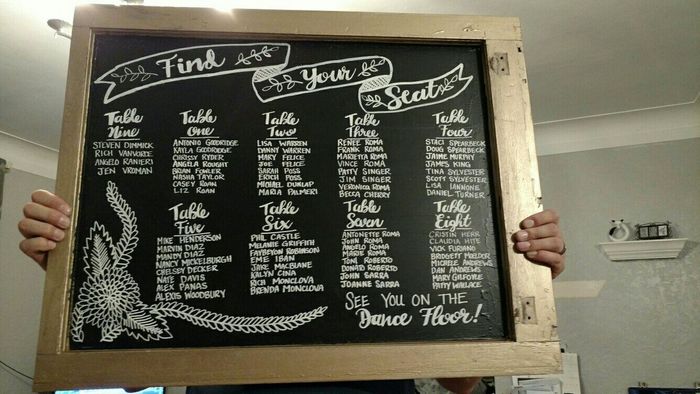 Find Your Seat
Table Nine
STEVEN DIMMICK
RICH VANVORCE
ANGELO RANIERI
JEN VROMAN
Table One
ANTONIO GOODRIDGE
KAYLA GOODRIDGE
CHRISSY RYDER
ANGELA ROUGHT
BRIAN FOWLER
NASHA TAYLOR
CASEY ROAN
LIZ ROAN
Table Two
LISA WARREN
DANNY WARREN
MARY FELICE
JOE FELICE
SARAH POSS
ERICH POSS
MICHAEL DUNLAP
MARIA PALMERI
Table Three
RENEE ROMA
FRANK ROMA
MARIETTA ROMA
VINCE ROMA
PATTY SINGER
JIM SINGER
VERONICA ROMA
BECCA CHERRY
Table Four
STACI SPEARBECK
DOUG SPEARBECK
JAIME MURPHY
JAMES KING
TINA SYLVESTER
SCOTT SYLVESTER
LISA IANNONE
DANIEL TURNER
Table Five
MIKE HENDERSON
MARVIN DIAZ
MANDY DIAZ
NANCY MICKELBURGH
CHELSEY DECKER
NATE DAVIS
ALEX PANAS
ALEXIS WOODBURY
Table Six
PHIL CASTLE
MELANIE GRIFFITH
FAYBEYON ROBINSON
EME IBAN
JAKE MACBLANE
KALYN CINA
RICH MONCLOVA
BRENDA MONCLOVA
Table Seven
ANTONETTE ROMA
JOHN ROMA
ANGELO ROMA
MARIE ROMA
TONI ROBERTO
DONATO ROBERTO
JOHN SARRA
JOANNE SARRA
Table Eight
CRISTIN HERR
CLAUDIA HITE
VICK FURIANO
BRIDGETT MOELDER
MICHELE ANDREWS
DAN ANDREWS
MARY GILFOYLE
PATTY WALLACE
SEE YOU ON THE
Dance Floor!